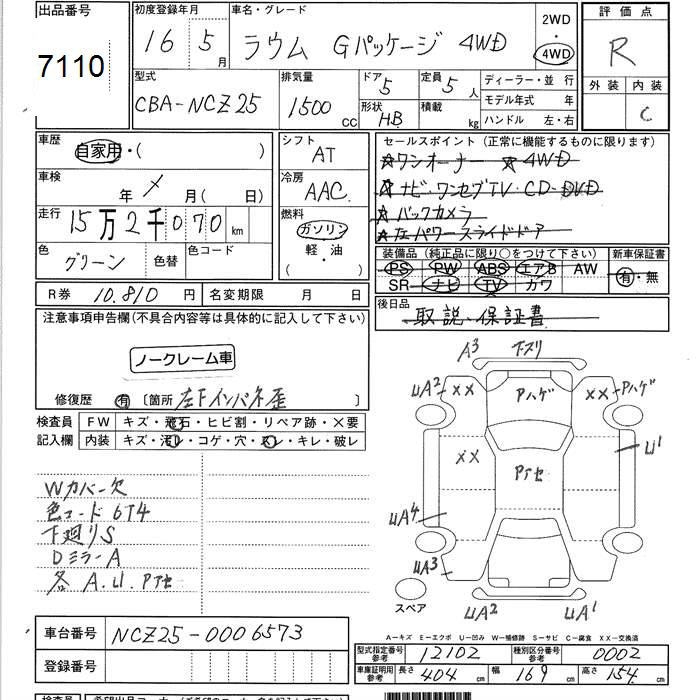 出品番号
7110
初度登録年月
16 5月
車名・グレード
ラウム Gパッケージ 4WD
2WD
4WD
評価点
R
外装 内装
C
型式
CBA-NCZ25
排気量
1500 CC
ドア 5
形状 HB
定員 5人
積載 kg
ディーラー・並行
モデル年式 年
ハンドル 左・右
車歴
自家用・( )
車検
年 〆 月( 日)
走行
15万2千070 km
色
グリーン
色替
色コード
シフト
AT
冷房
AAC
燃料
ガソリン
軽・油
( )
セールスポイント(正常に機能するものに限ります)
☆ワンオーナー ☆4WD
☆ナビ・ワンセグTV・CD・DVD
☆バックカメラ
☆左パワースライドドア
装備品(純正品に限り○をつけて下さい)
PS PW ABS エアB AW
SR ナビ TV カワ
新車保証書
有・無
後日品
取説・保証書
R券 10.810 円
名変期限 月 日
注意事項申告欄(不具合内容等は具体的に記入して下さい)
ノークレーム車
修復歴 有 〔箇所 左Fインパネ歪 〕
検査員
記入欄
FW キズ・飛石・ヒビ割・リペア跡・×要
内装 キズ・汚レ・コゲ・穴・スレ・キレ・破レ
Wカバー欠
色コード 6T4
下廻りS
DミラーA
各 A.U.Pアセ
A3 下スリ
UA2 ×× Pハゲ ×× Pハゲ
×× Pアセ U1
UA4
UA3
スペア
UA2 UA1
A-キズ E-エクボ U-凹み W-補修跡 S-サビ C-腐食 XX-交換済
車台番号
NCZ25-0006573
登録番号
型式指定番号
参考
12102
種別区分番号
参考
0002
車庫証明用
参考
長さ 404 cm 幅 169 cm 高さ 154 cm